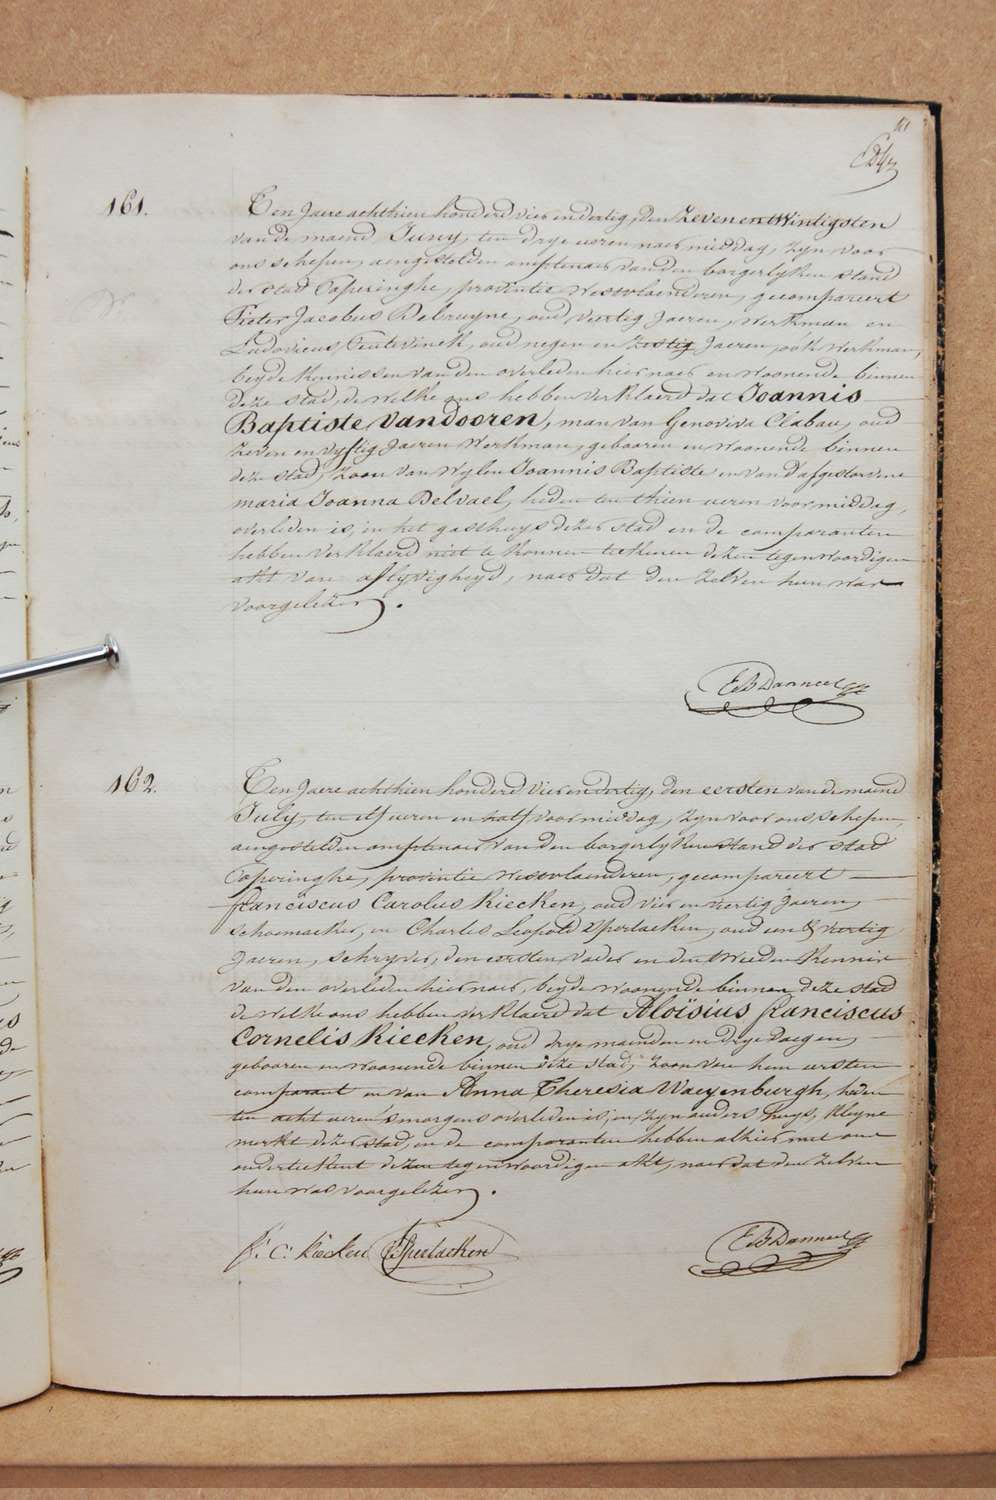 161.
Ten Jaere achthien honderd vier en dertig, den zevenentwintigsten
van de maend Juny, ten drye ueren naer middag, zyn voor
ons schepen, aengestelden amptenaer van den borgerlyken stand
der stad Poperinghe, provintie Westvlaenderen, gecompareert
Pieter Jacobus Debruyne, oud veertig Jaeren, Werkman en
Ludovicus oud negen en zestig Jaeren, ook Werkman,
beyde kennissen van den overleden hier naer en woonende binnen
deze stad, de welke ons hebben verklaerd dat Joannis
Baptiste Vandooren, man van Genoviva Clabau, oud
zeven en vyftig Jaeren Werkman, gebooren en woonende binnen
deze stad, zoon van Wylen Joannis Baptiste en van d'afgestorvene
maria Joanna Delvael, heden ten thien ueren voor middag,
overleden is, in het gasthuys dezer stad en de comparanten
hebben verklaerd niet te konnen teekenen dezen tegenwoordigen
akt van aflyvigheyd, naer dat den zelven hun was
voorgelezen.
E B Danneel
162.
Ten Jaere achthien honderd vier en dertig, den eersten van de maend
July, ten elf ueren en half voormiddag, zyn voor ons, schepen,
aengestelden amptenaer van den borgerlyken stand der stad
Poperinghe, provintie Westvlaenderen, gecompareert
franciscus Carolus Kiecken, oud vier en veertig Jaeren,
schoemaeker, en Charles Leopold Sperlaeken, oud een & veertig
Jaeren, schryver, den eersten vader en den tweeden kennis
van den overleden hier naer, beyde woonende binnen deze stad
de welke ons hebben verklaerd dat Aloïsius franciscus
Cornelis Kiecken, oud drye maenden en drye daegen,
gebooren en woonende binnen deze stad, zoon van hun eersten
comparant en van Anna Theresia Waeyenburgh, heden
ten acht ueren 's morgens overleden is, in zyn ouders huys, kleyne
merkt dezer stad, en de comparanten hebben alhier met ons
onderteekent dezen tegenwoordigen akt, naer dat den zelven
hun was voorgelezen.
f. C. Kiecken Sperlaeken E B Danneel